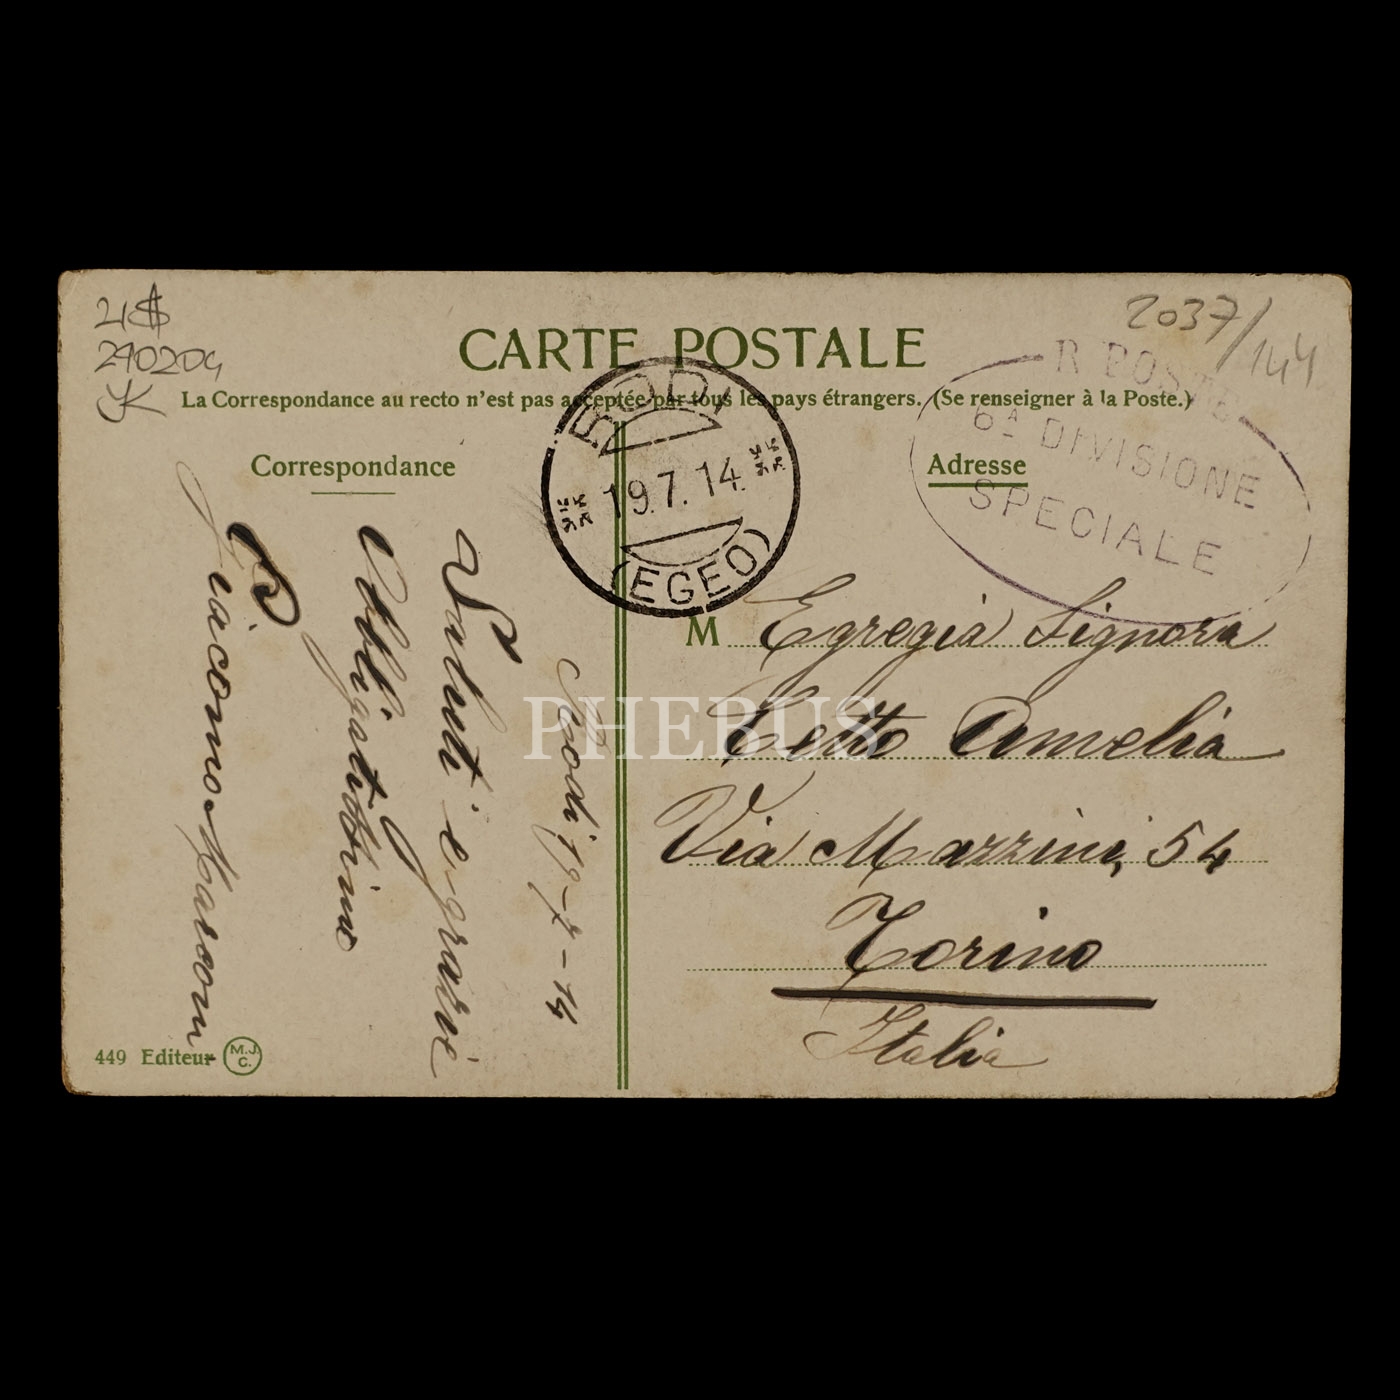 CARTE POSTALE
La Correspondance au recto n'est pas acceptée par tous les pays étrangers. (Se renseigner à la Poste.)
Correspondance
Adresse
2037/144
R POSTE
6A DIVISIONE
SPECIALE
RODI
19.7.14
(EGEO)
Rodi 19-7-14
Saluti e grazie
Obbligatissimo
Giacomo Marconi
M Egregia Signora
Cetto Amelia
Via Mazzini, 54
Torino
Italia
449 Editeur M.J.C.
PHEBUS